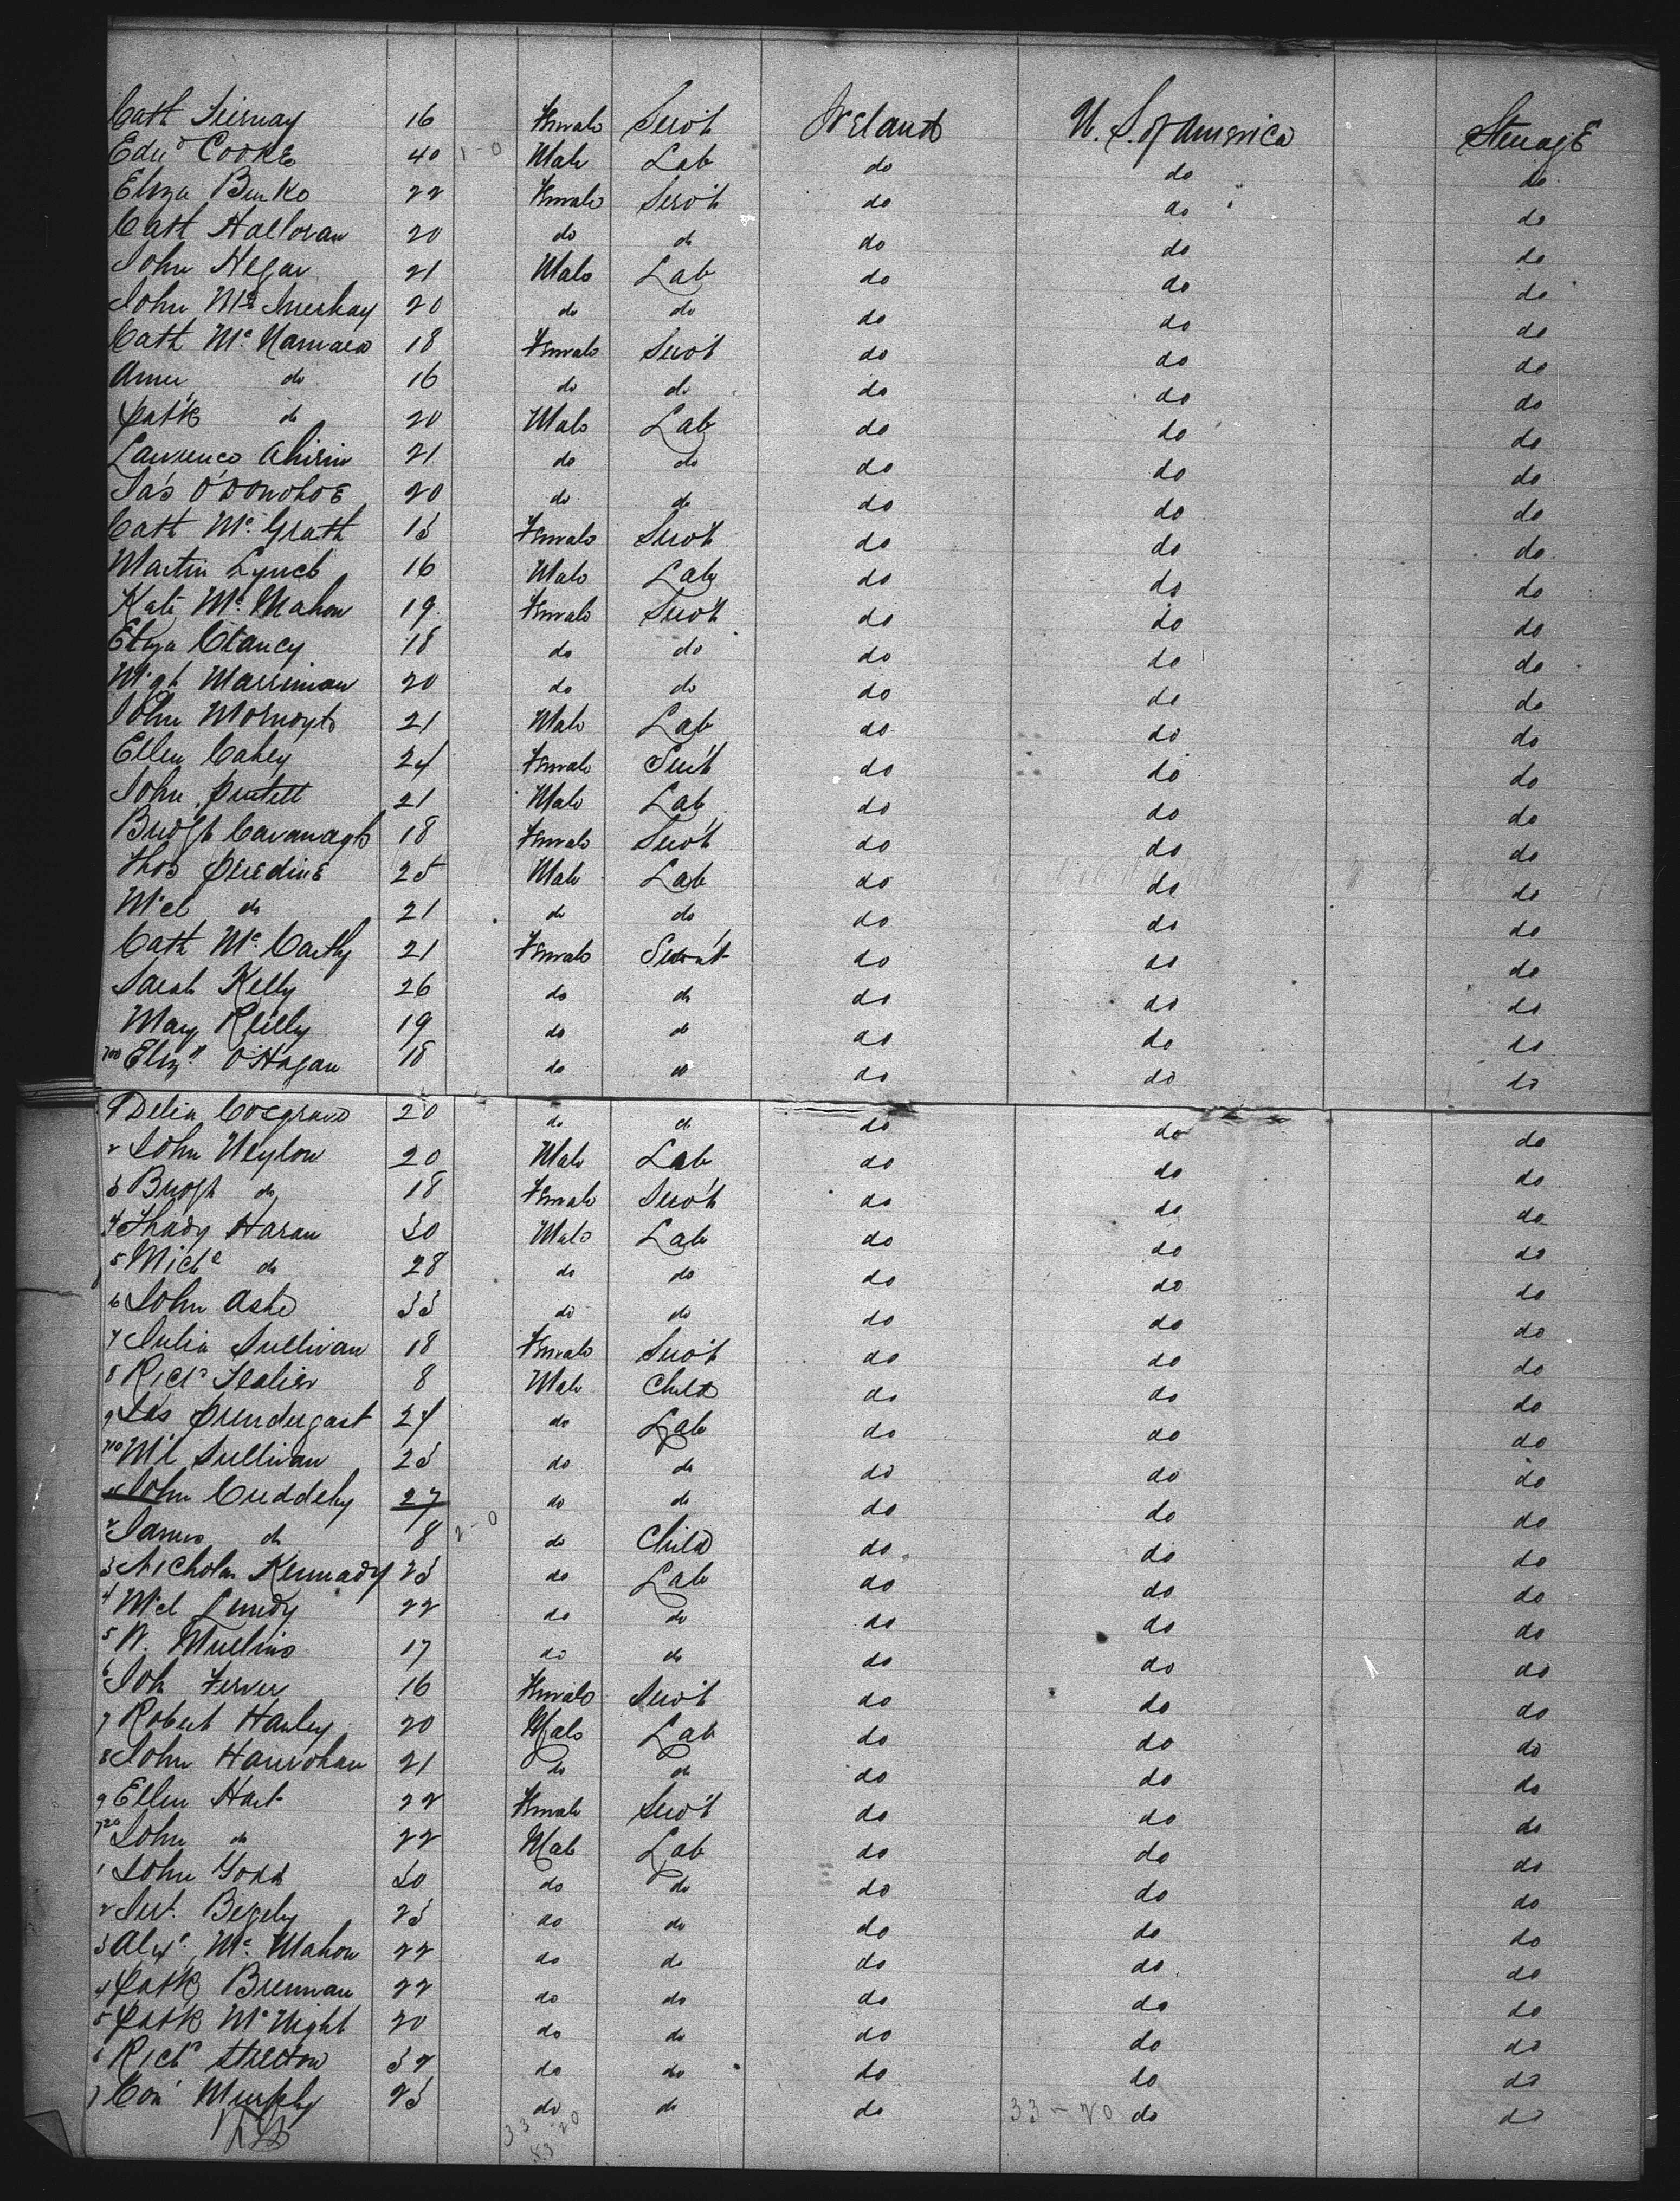 Cath Tiernay 16 Female Servt Ireland U. S. of America Steerage
Edwd Cooke 40 1-0 Male Lab do do do
Eliza Burke 22 Female Servt do do do
Cath Halloran 20 do do do do do
John Hegan 21 Male Lab do do do
John Mc 20 do do do do do
Cath Mc Namara 18 Female Servt do do do
Anne do 16 do do do do do
Patk do 20 Male Lab do do do
Lawrence 21 do do do do do
Jas O'Donohoe 20 do do do do do
Cath Mc Grath 18 Female Servt do do do
Martin Lynch 16 Male Lab do do do
Kate Mc Mahon 19 Female Servt do do do
Eliza Clancy 18 do do do do do
Mgt Marriman 20 do do do do do
John 21 Male Lab do do do
Ellen Cahey 24 Female Servt do do do
John 21 Male Lab do do do
Bridgt Cavanagh 18 Female Servt do do do
Thos Peredine 25 Male Lab do do do
Micl do 21 do do do do do
Cath Mc Carthy 21 Female Servant do do do
Sarah Kelly 26 do do do do do
Mary Reilly 19 do do do do do
700 Elizh O'Hagan 18 do do do do do
1 Delia Cosgrave 20 do do do do do
2 John Neylon 20 Male Lab do do do
3 Bridgt do 18 Female Servt do do do
4 Thady Haran 30 Male Lab do do do
5 Michl do 28 do do do do do
6 John Ashe 33 do do do do do
7 Julia Sullivan 18 Female Servt do do do
8 Richd 8 Male Child do do do
9 Jas Prendergast 24 do Lab do do do
710 Ml Sullivan 23 do do do do do
John Cuddehy 27 do do do do do
2 James do 8 2-0 do Child do do do
3 Nicholas Kennady 23 do Lab do do do
4 Micl Lundy 22 do do do do do
5 W. Mullins 17 do do do do do
6 Joh 16 Female Servt do do do
7 Robert Hanley 20 Male Lab do do do
8 John Hanrohan 21 do do do do do
9 Ellen Hart 22 Female Servt do do do
720 John do 22 Male Lab do do do
1 John 30 do do do do do
2 Begely 23 do do do do do
3 Alexr Mc Mahon 22 do do do do do
4 Patk Brennan 22 do do do do do
5 Patk McNight 20 do do do do do
6 Richd Stretton 32 do do do do do
7 Con Murphy 23 do do do 33-20 do do
33 20
83